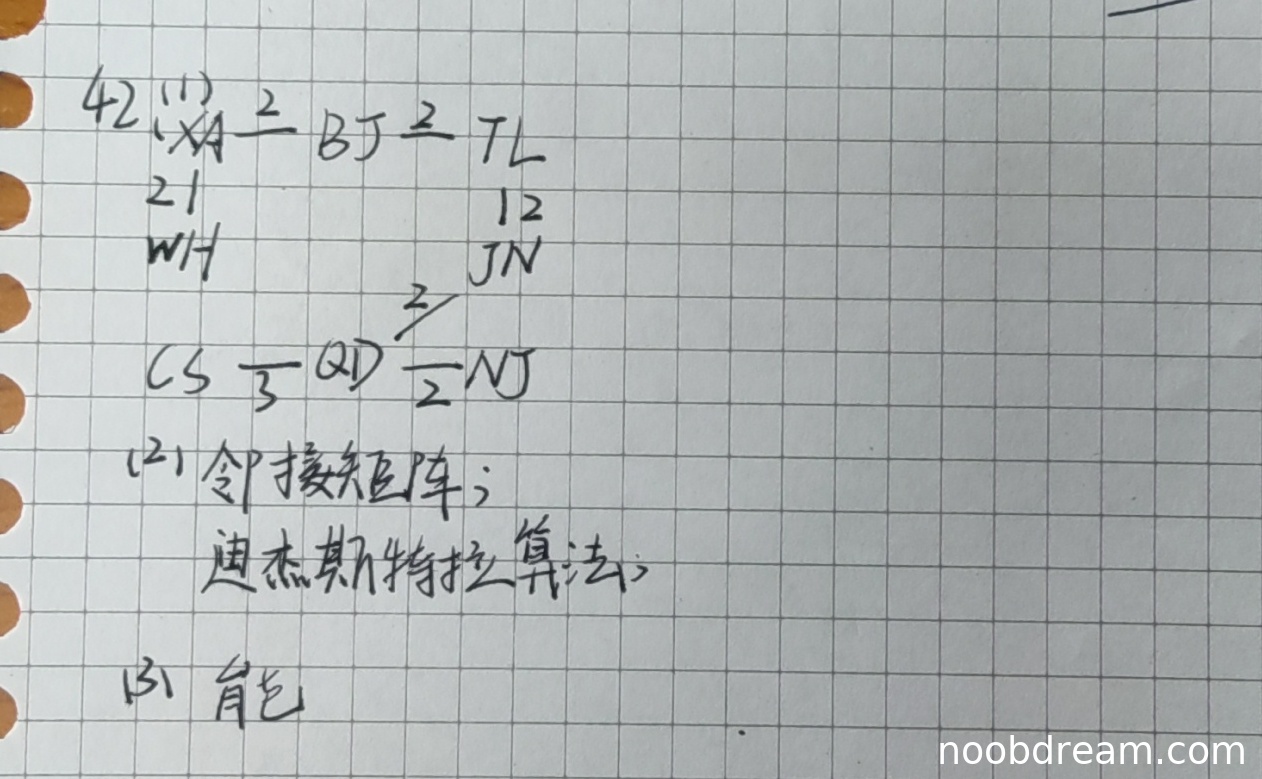 42 (1)
XA 2 BJ 2 TL
21 12
WH JN
2
CS 3 QD 2 NJ
(2) 邻接矩阵;
迪杰斯特拉算法;
(3) 能
noobdream.com